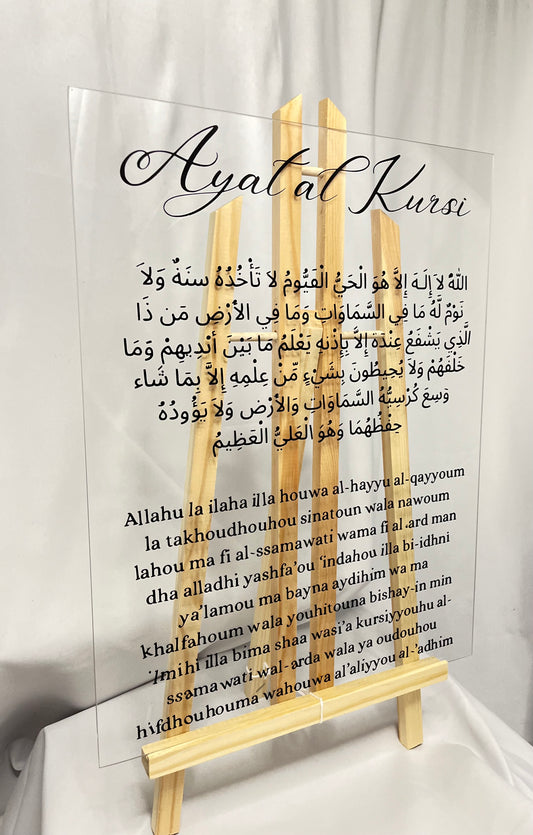 Ayat al Kursi
اللهُ لاَ إِلَـهَ إِلاَّ هُوَ الْحَيُّ الْقَيُّومُ لاَ تَأْخُذُهُ سِنَةٌ وَلاَ
نَوْمٌ لَّهُ مَا فِي السَّمَاوَاتِ وَمَا فِي الأَرْضِ مَن ذَا
الَّذِي يَشْفَعُ عِنْدَهُ إِلاَّ بِإِذْنِهِ يَعْلَمُ مَا بَيْنَ أَيْدِيهِمْ وَمَا
خَلْفَهُمْ وَلاَ يُحِيطُونَ بِشَيْءٍ مِّنْ عِلْمِهِ إِلاَّ بِمَا شَاء
وَسِعَ كُرْسِيُّهُ السَّمَاوَاتِ وَالأَرْضَ وَلاَ يَؤُودُهُ
حِفْظُهُمَا وَهُوَ الْعَلِيُّ الْعَظِيمُ
Allahu la ilaha illa houwa al-hayyu al-qayyoum
la takhoudhouhou sinatoun wala nawoum
lahou ma fi al-ssamawati wama fi al.ard man
dha alladhi yashfa'ou 'indahou illa bi-idhni
ya'lamou ma bayna aydihim wa ma
khalfahoum wala youhitouna bishay-in min
'Imihi illa bima shaa wasi'a kursiyyouhu al-
ssamawati wal-arda wala ya oudouhou
hifdhouhouma wahouwa al'aliyyou al-'adhim